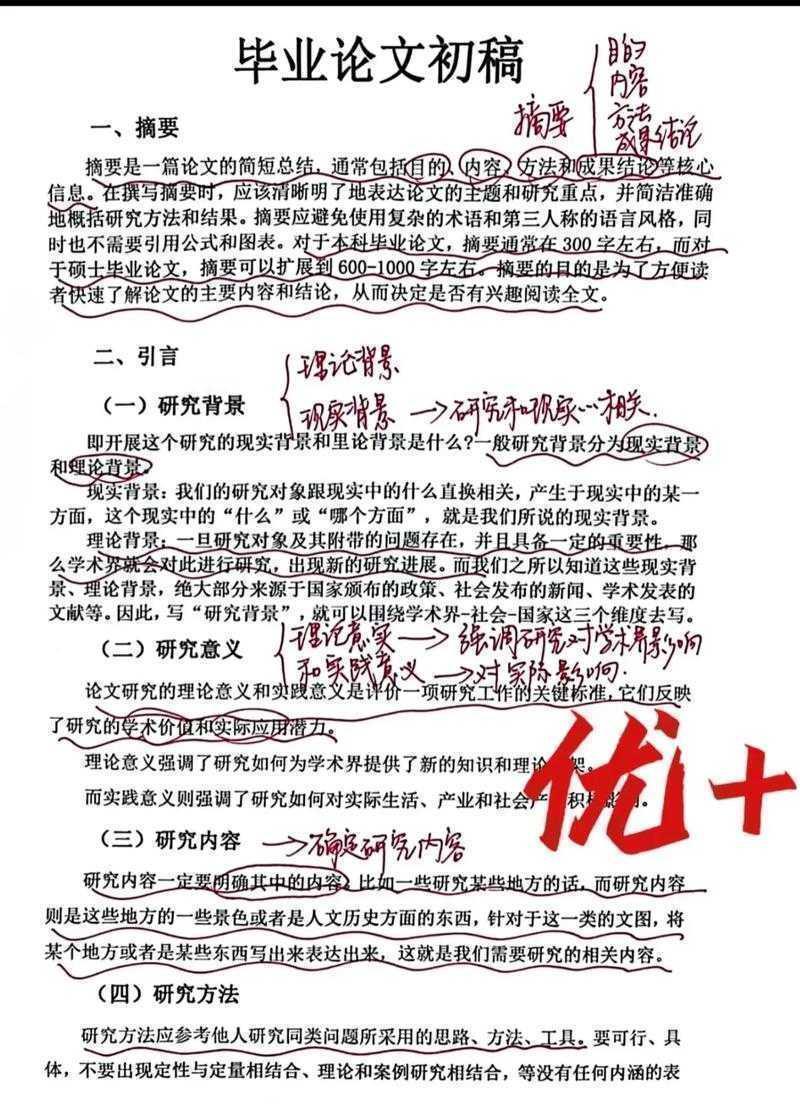 毕业论文初稿
目的
内容
方法
成果结论
摘要
一、摘要
摘要是一篇论文的简短总结，通常包括目的、内容、方法和成果结论等核心
信息。在撰写摘要时，应该清晰明了地表达论文的主题和研究重点，并简洁准确
地概括研究方法和结果。摘要应避免使用复杂的术语和第三人称的语言风格，同
时也不需要引用公式和图表。对于本科毕业论文，摘要通常在 300 字左右，而对
于硕士毕业论文，摘要可以扩展到 600-1000 字左右。摘要的目的是为了方便读
者快速了解论文的主要内容和结论，从而决定是否有兴趣阅读全文。
二、引言
理论背景
（一）研究背景
现实背景 →研究和现实心相关.
即开展这个研究的现实背景和里论背景是什么？一般研究背景分为现实背景
和理论背景。
现实背景：我们的研究对象跟现实中的什么直换相关，产生于现实中的某一
方面，这个现实中的“什么”或“哪个方面”，就是我们所说的现实背景。
理论背景：一旦研究对象及其附带的问题存在，并且具备一定的重要性，那
么学术界就会对此进行研究，出现新的研究进展。而我们之所以知道这些现实背
景、理论背景，绝大部分来源于国家颁布的政策、社会发布的新闻、学术发表的
文献等。因此，写“研究背景”，就可以围绕学术界-社会-国家这三个维度去写。
（二）研究意义
理论意实 → 强调研究对学术界影响
和实践意义 →对实际影响.
论文研究的理论意义和实践意义是评价一项研究工作的关键标准，它们反映
了研究的学术价值和实际应用潜力。
理论意义强调了研究如何为学术界提供了新的知识和理论架。
而实践意义则强调了研究如何对实际生活、产业和社会产积极影响。
优+
（三）研究内容 →确定研究内容
研究内容一定要明确其中的内容，比如一些研究某些地方的话，而研究内容
则是这些地方的一些景色或者是人文历史方面的东西，针对于这一类的文图，将
某个地方或者是某些东西写出来表达出来，这就是我们需要研究的相关内容。
（四）研究方法
研究方法应参考他人研究同类问题所采用的思路、方法、工具。要可行、具
体，不要出现定性与定量相结合、理论和案例研究相结合，等没有任何内涵的表